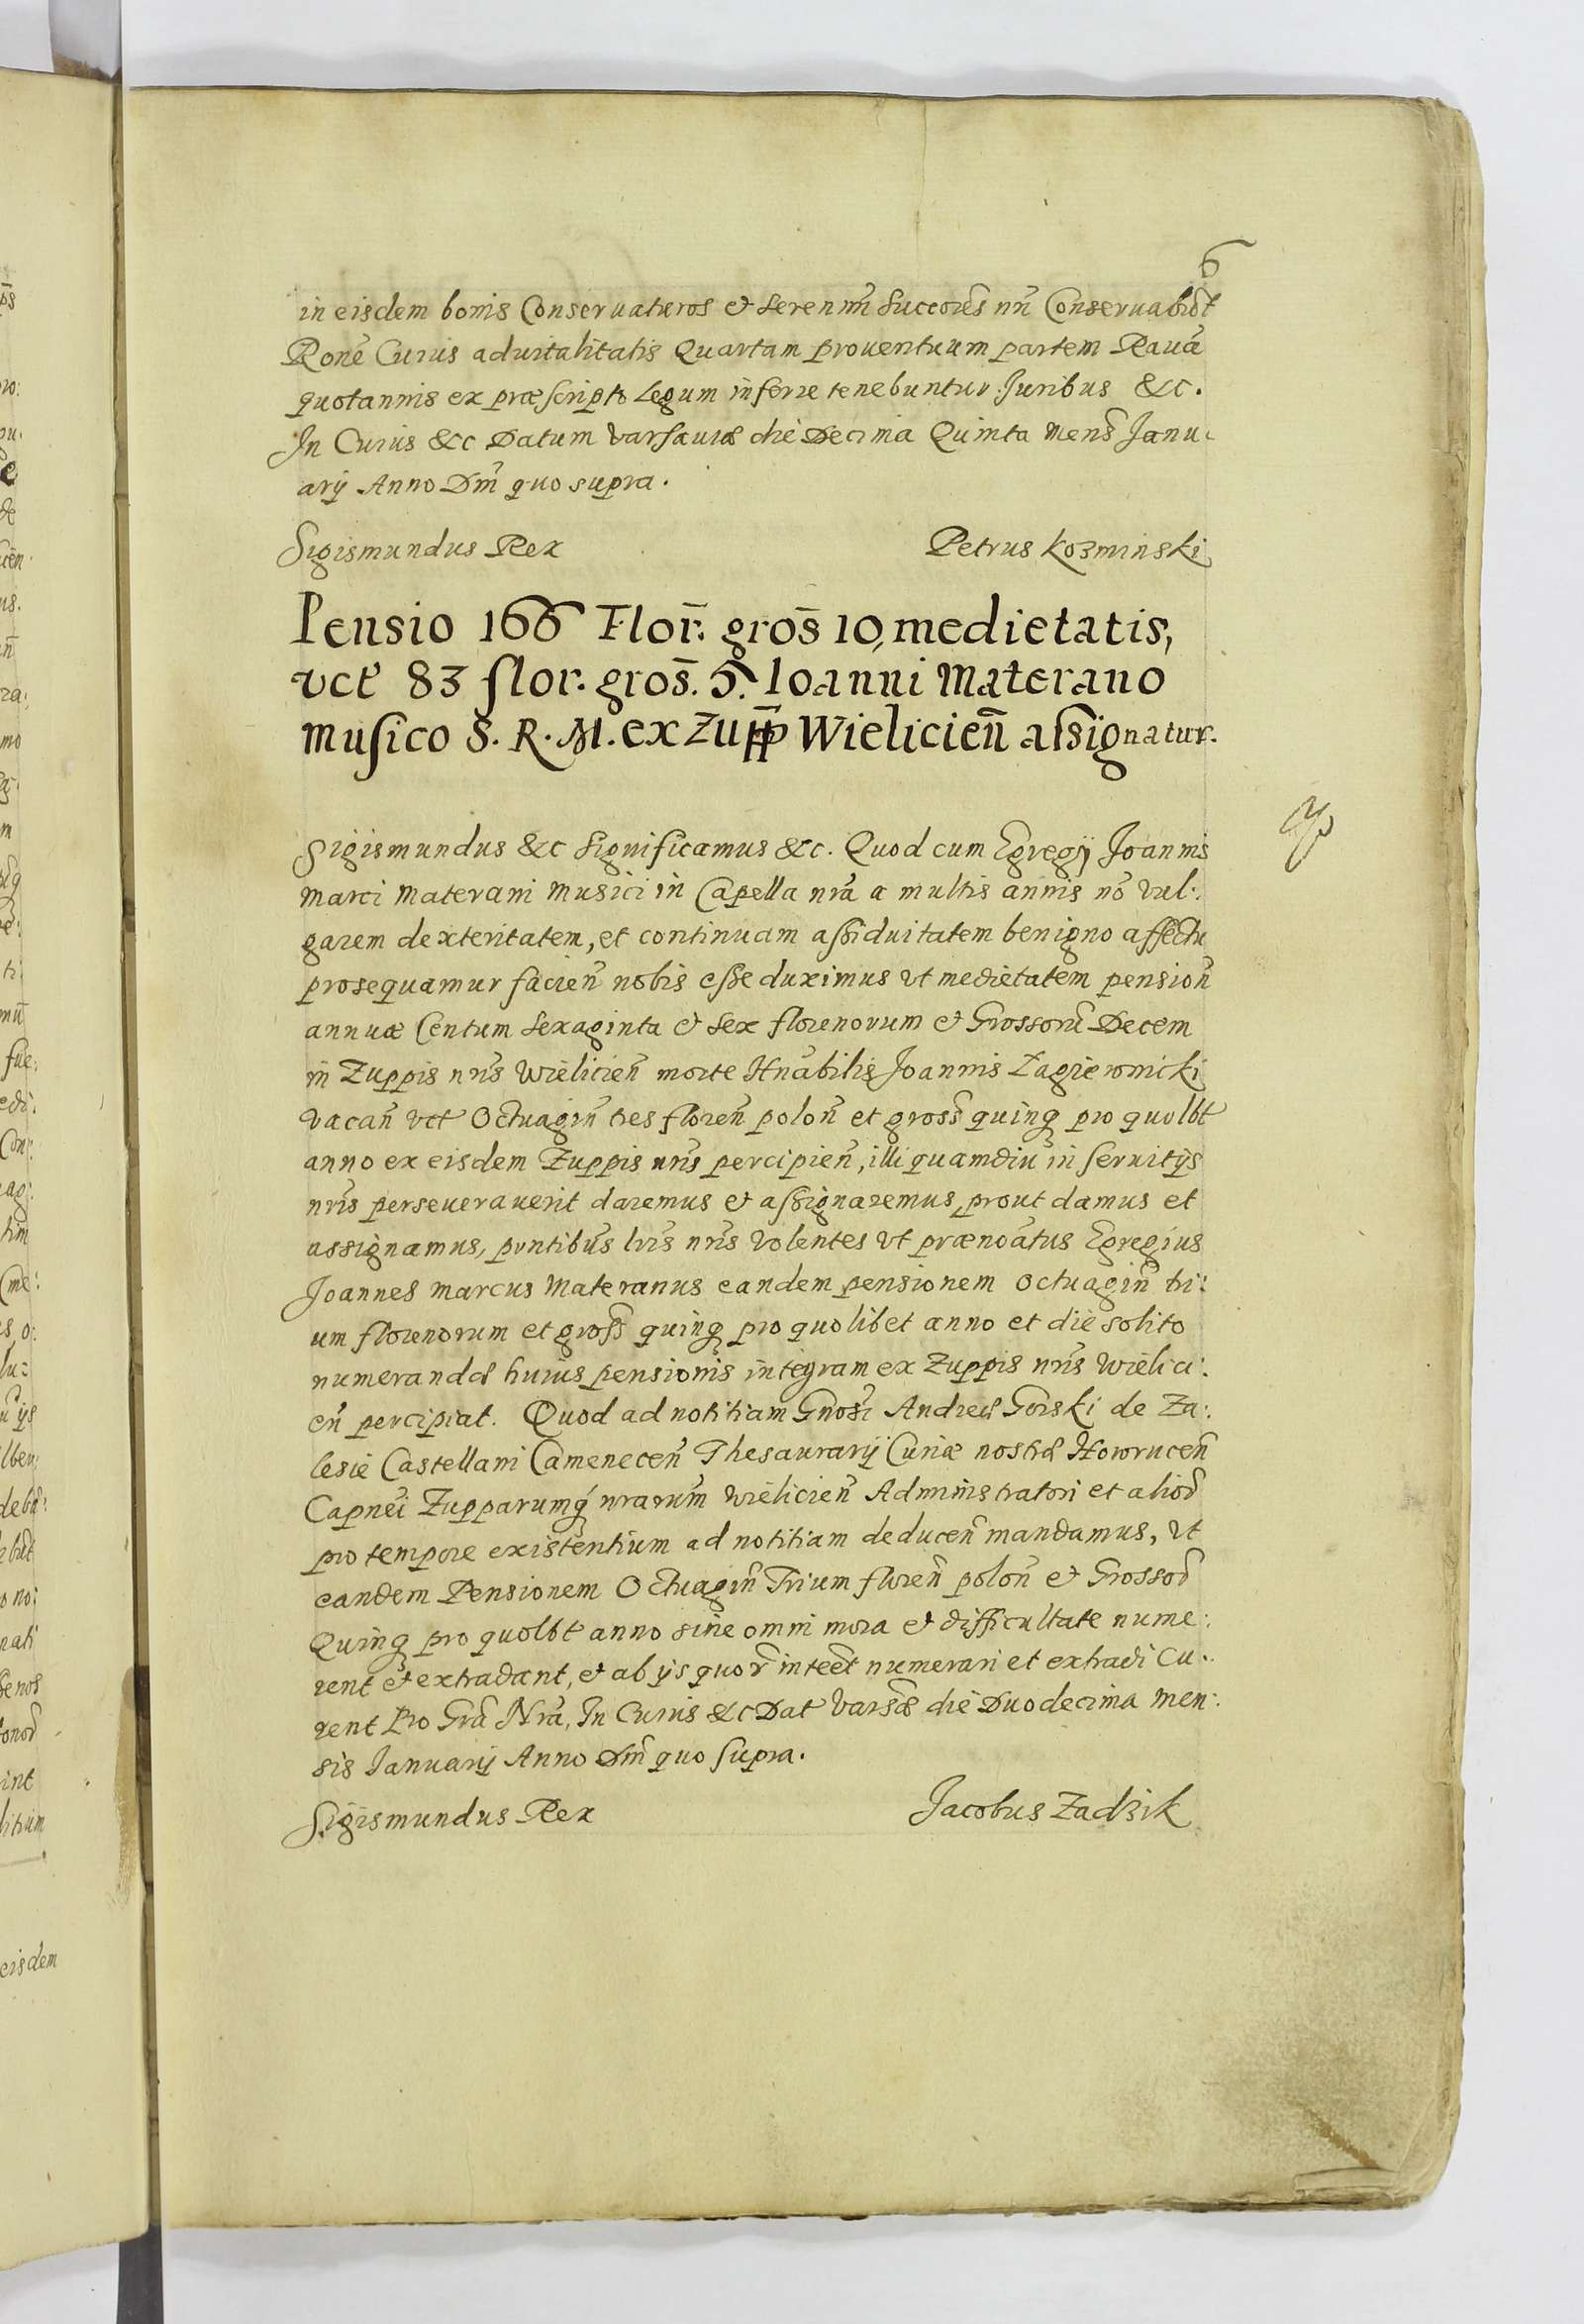 6
in eisdem bonis Conseruaturos et Serennm̃ Succorẽs nr̃i Conseruabũt
Ronẽ Cuius aduitalitatis Quartam prouentuum partem Rauã
quotannis ex præscripto Legum inferre tenebuntur Juribus &c.
In Cuius &c Datum Varsauiæ die Decima Quinta Mens̃ Janu-
arij Anno Dm̃ quo supra.
Sigismundus Rex Petrus Kozminski
Pensio 166 Flor̃: gros̃ 10, medietatis,
vct 83 flor. gros̃. 5. Ioanni Materano
musico S. R. M. ex Zupp̃ Wieliciẽn assignatur.
Sigismundus &c Significamus &c. Quod cum Egregij Joannis
Marci Materani Musici in Capella nrã a multis annis nõ Vul:
garem dexteritatem, et continuam assiduitatem benigno affectu
prosequamur facien̄ nobis esse duximus vt medietatem pension̄
annuæ Centum Sexaginta et Sex florenorum et Grossorũ Decem
in Zuppis nrĩs Wielicien̄ morte Hnãbilis Joannis Zagierowicki
vacan̄ vct Octuagin̄ tres floren̄ polon̄ et gross̄ quinq pro quolbt
anno ex eisdem Zuppis nrĩs percipien̄, illi quamdiu in seruitijs
nrĩs perseuerauerit daremus et assignaremus, prout damus et
assignamus, pῦntibus lrĩs nrĩs Volentes vt prænoãtus Egregius
Joannes Marcus Materanus eandem pensionem Octuagin̄ tri:
um florenorum et gross̄ quinq pro quolibet anno et die solito
numerandæ huius pensionis integram ex Zuppis nrĩs Wielici:
en̄ percipiat. Quod ad notitiam Gnosĩ Andreæ Gorski de Za:
lesie Castellani Camenecen̄ Thesaurarij Curiæ nostræ Howrucen̄
Capnei Zupparumq́ nrarum̃ Wielicien̄ Administratori et aliorũ
pro tempore existentium ad notitiam deducen̄ mandamus, vt
eandem Pensionem Octuagin̄ Trium floren̄ polon̄ et Grossorũ
Quinq pro quolbt anno sine omni mora et difficultate nume:
rent et extradant, et ab ijs quor̃ inteẽt numerari et extradi Cu:
rent Pro Grã Nrã, In Cuius &c Dat Varsæ die Duodecima Men:
sis Januarij Anno Dm̃ quo supra.
Sigismundus Rex Jacobus Zadzik